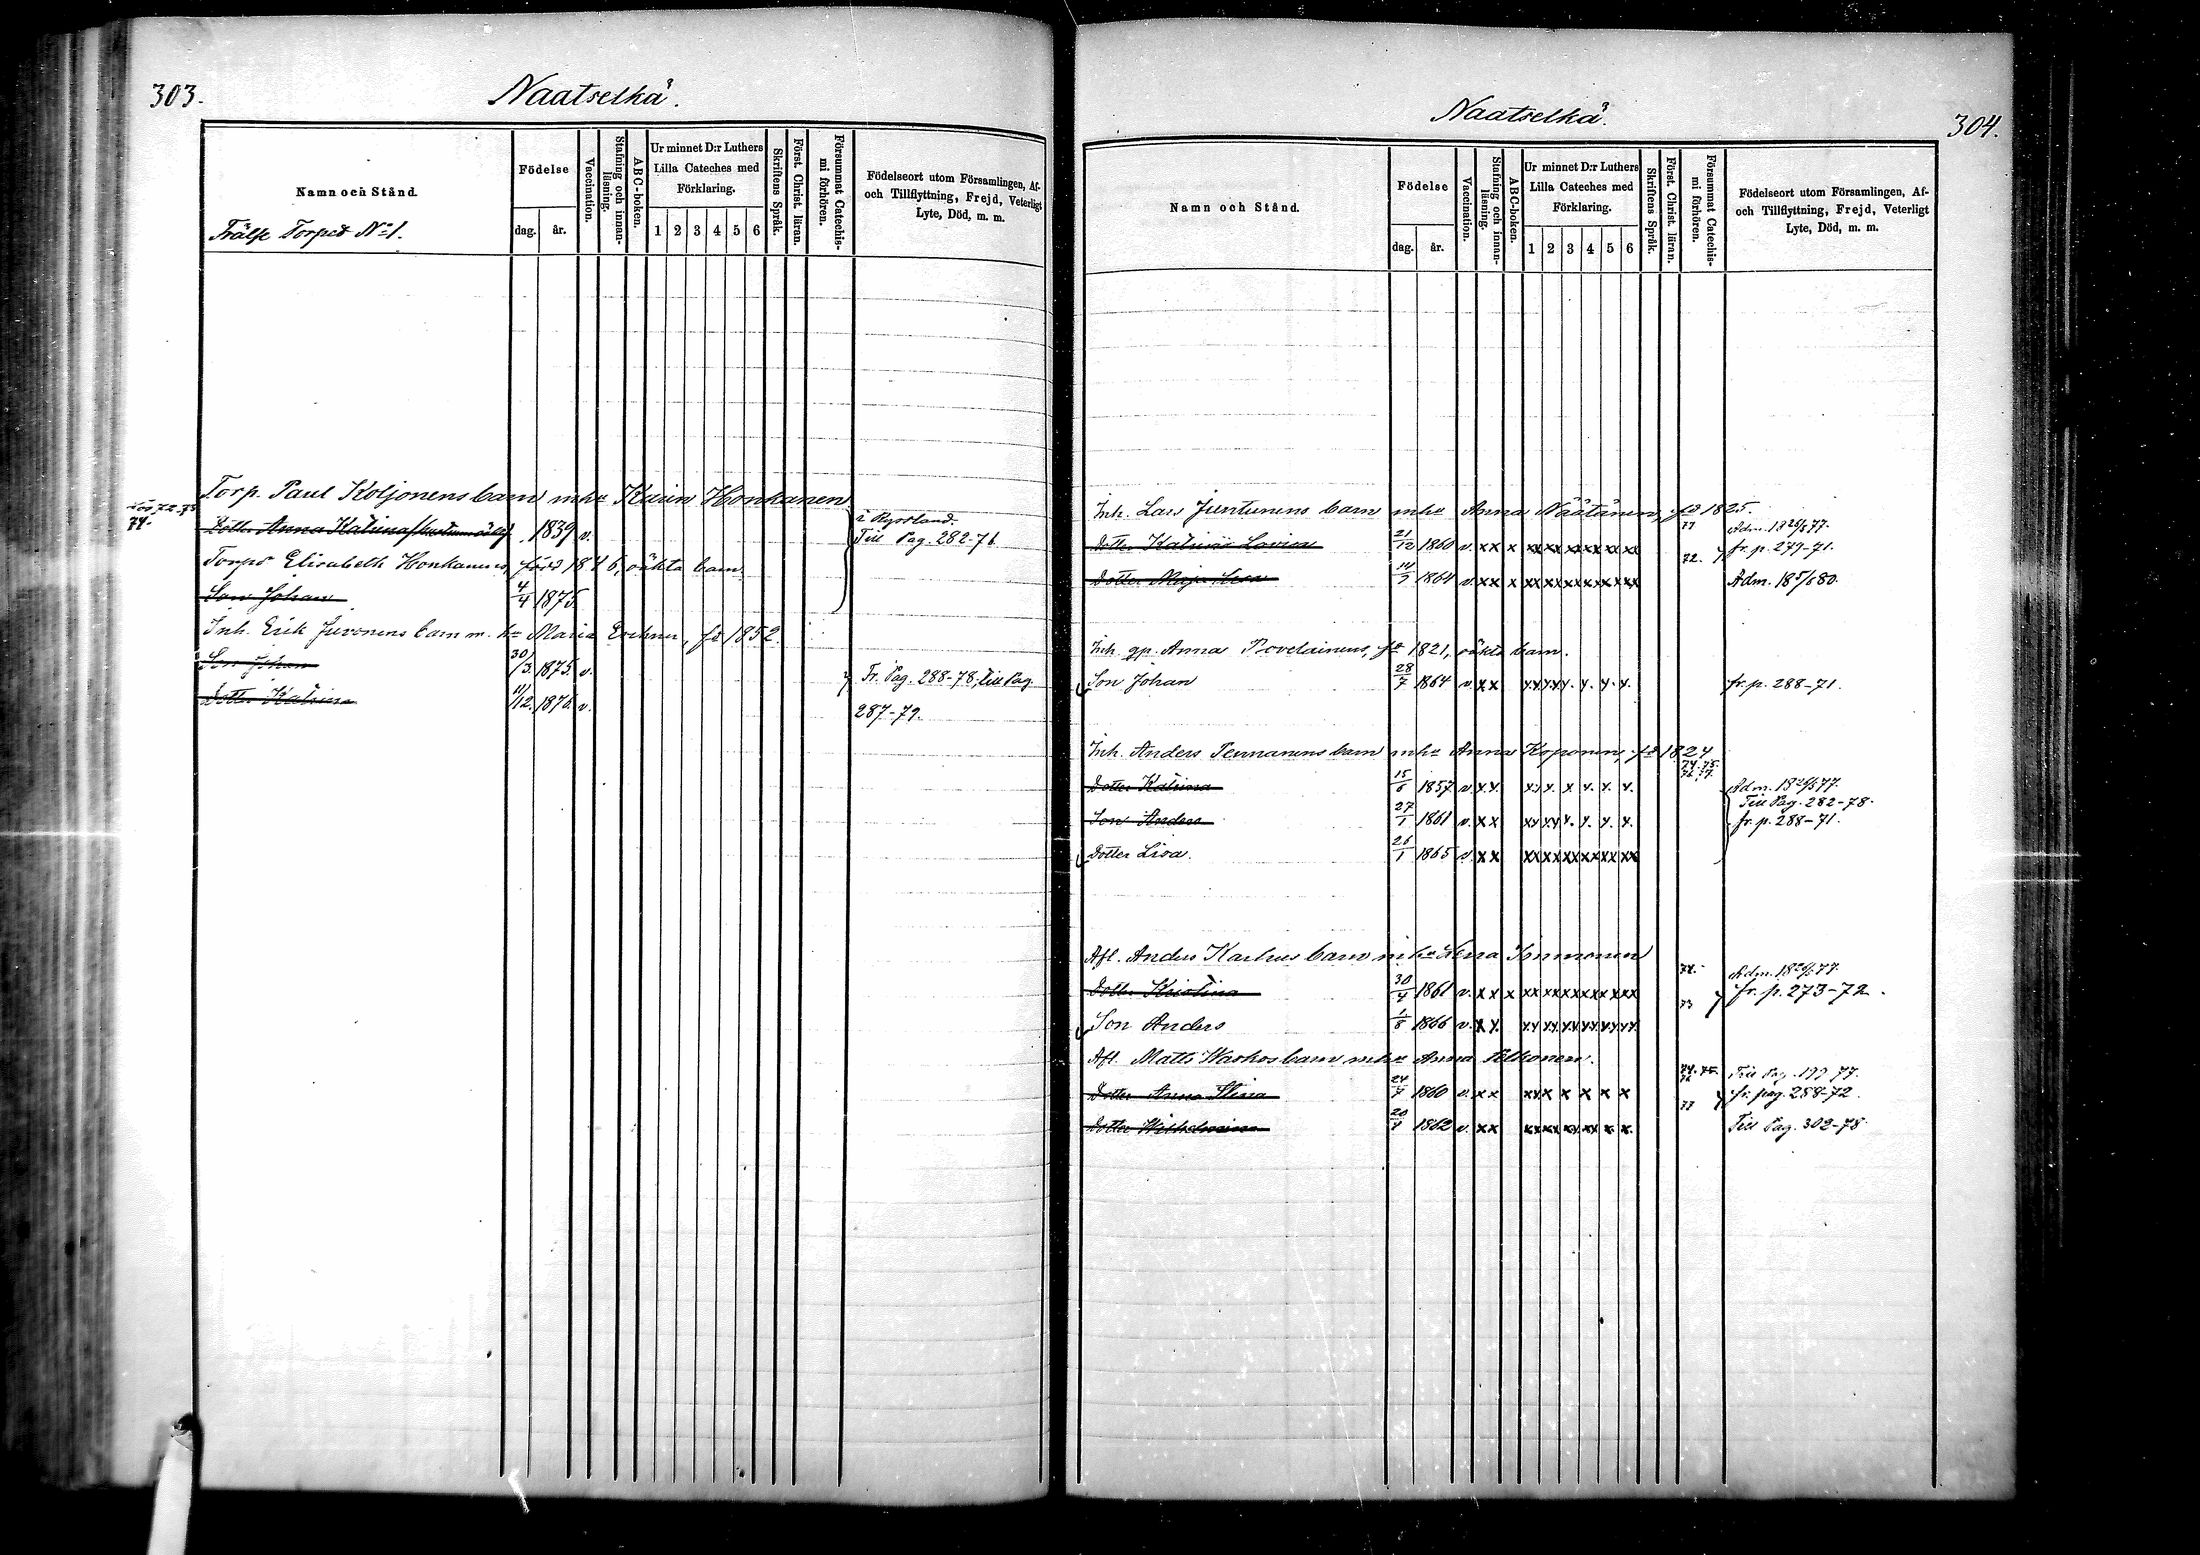 303.
Naatselkä.
Namn och Stånd.
Frälse Torpet No 1.
Födelse
dag.
år.
Vaccination.
Stafning och innan-
läsning.
ABC-boken.
Ur minnet D:r Luthers
Lilla Cateches med
Förklaring.
1 2 3 4 5 6
Skriftens Språk.
Först. Christ. läran.
Försummat Catechis-
mi förhören.
Födelseort utom Församlingen, Af-
och Tillflyttning, Frejd, Veterligt
Lyte, Död, m. m.
Torp. Paul Koljonens barn mhu Karin Honkanen
74.
Dotter Anna Katrina 1839 v.
i Ryssland.
Till Pag. 282-76
Torpd Elisabeth Honkanens, född 1846, oäkta barn
Son Johan 4/4 1875.
Inh. Erik Juvonens barn m. hu Maria, fd 1852.
Son Johan 30/3 1875. v.
Fr. Pag. 288-78, till Pag.
Dotter Katrina 11/12. 1876. v.
287-79.
Naatselkä.
304.
Namn och Stånd.
Födelse
dag.
år.
Vaccination.
Stafning och innan-
läsning.
ABC-boken.
Ur minnet D:r Luthers
Lilla Cateches med
Förklaring.
1 2 3 4 5 6
Skriftens Språk.
Först. Christ. läran.
Försummat Catechis-
mi förhören.
Födelseort utom Församlingen, Af-
och Tillflyttning, Frejd, Veterligt
Lyte, Död, m. m.
Inh. Lars Juntunens barn mhu Anna Näätänen, fd 1825.
Dotter Katrina Lovisa 21/12 1860 v. xx x xx xx xx xx xx xx 72.
fr. p. 279-71.
Dotter Maja Lisa 14/5 1864 v. xx x xx xx xx xx xx xx
Adm. 18 5/6 80.
Inh. gp. Anna Povelainens, fd 1821, oäkta barn.
Son Johan 28/7 1864 v. xx
fr. p. 288-71.
Inh. Anders Pennanens barn mhu Anna Koponen, fd 1824
Dotter Katrina 15/6 1857 v. x x.
Till Pag. 282-78.
Son Anders 27/1 1861 v. x x
fr. p. 288-71.
Dotter Lisa. 26/1 1865 v. x x xx xx xx xx xx xx
Afl. Anders Karhus barn mhu Lena Immonen
74.
Dotter Kristina 30/4 1861 v. x x x xx xx xx xx xx xx 73
fr. p. 273-72.
Son Anders 1/8 1866 v. x x.
Afl. Matts Warkos barn mhu Anna
Dotter Anna Stina 24/7 1860 v. x x xx x x x x x 77
fr. pag. 288-72.
Dotter Wilhelmina 20/4 1862 v. x x
Till Pag. 302-78